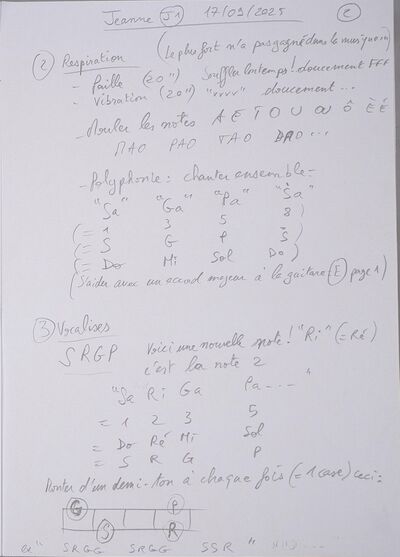 Jeanne J1 17/09/2025 2
(Le plus fort n'a pas gagné dans la musique)
2 Respiration
- Paille (20") Souffler longtemps! doucement FFF
- Vibration (20") "vvvv" doucement...
- Rouler les notes A E I O U OU Ô È É
MAO PAO TAO DAO...
- Polyphonie: chanter ensemble =
"Sa" "Ga" "Pa" "Ṡa"
(= 1 3 5 8)
(= S G P Ṡ)
(= Do Mi Sol Do)
(S'aider avec un accord majeur à la guitare E page 1)
3 Vocalises
SRGP Voici une nouvelle note! "Ri" (= Ré)
c'est la note 2
"Sa Ri Ga Pa ... "
= 1 2 3 5
= Do Ré Mi Sol
= S R G P
Monter d'un demi-ton à chaque fois (= 1 case) ceci:
G P
S R
ex " SRGG SRGG SSR "